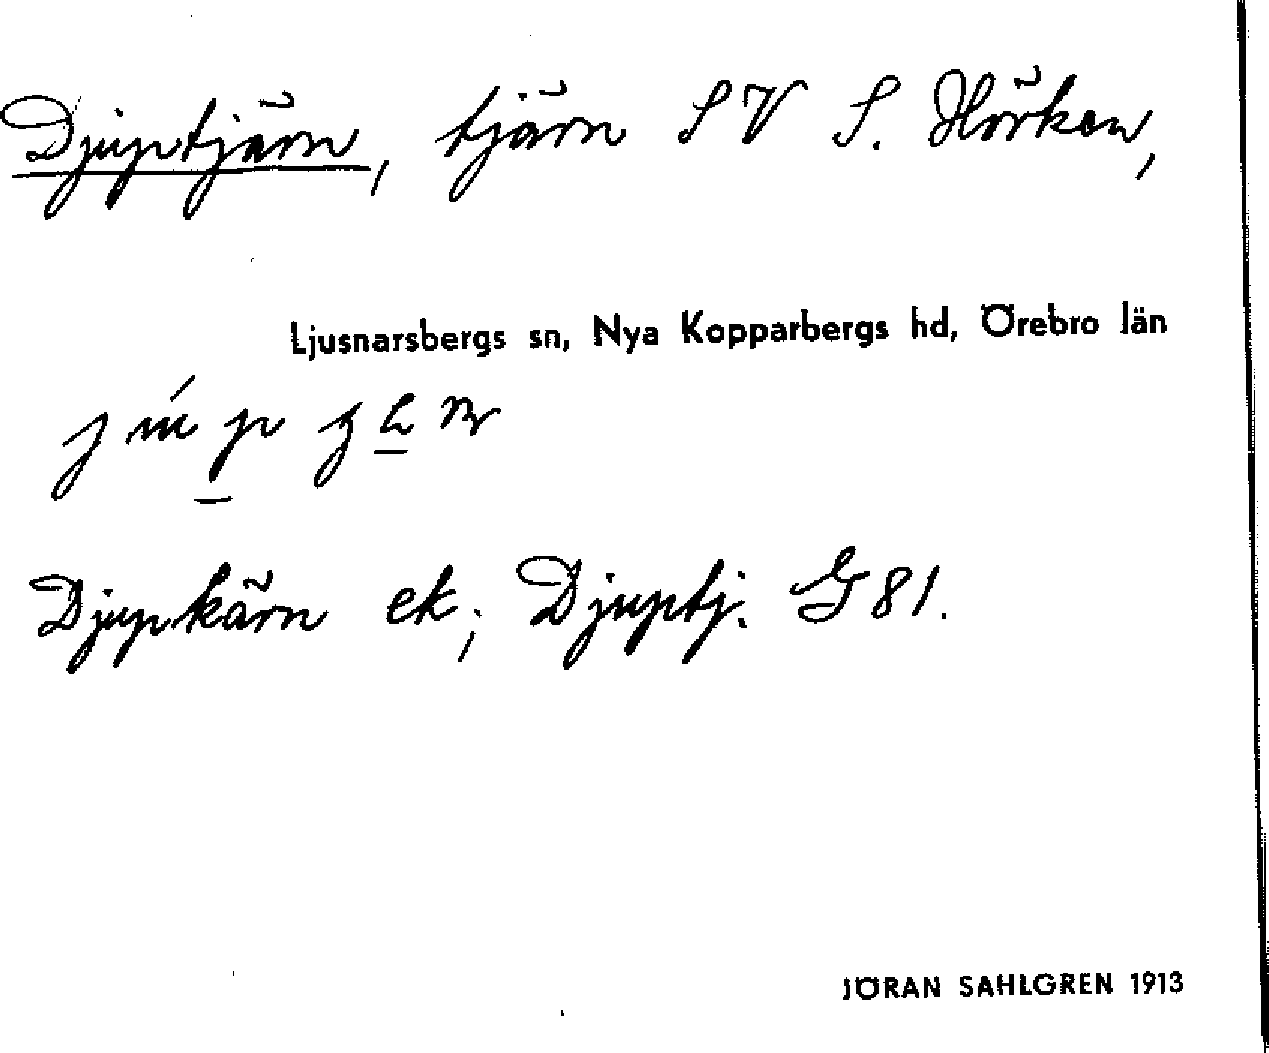 Djuptjärn, tjärn SV S. Hörken,
Ljusnarsbergs sn, Nya Kopparbergs hd, Örebro län
Djupkärn ek; Djuptj. G 81.
JÖRAN SAHLGREN 1913